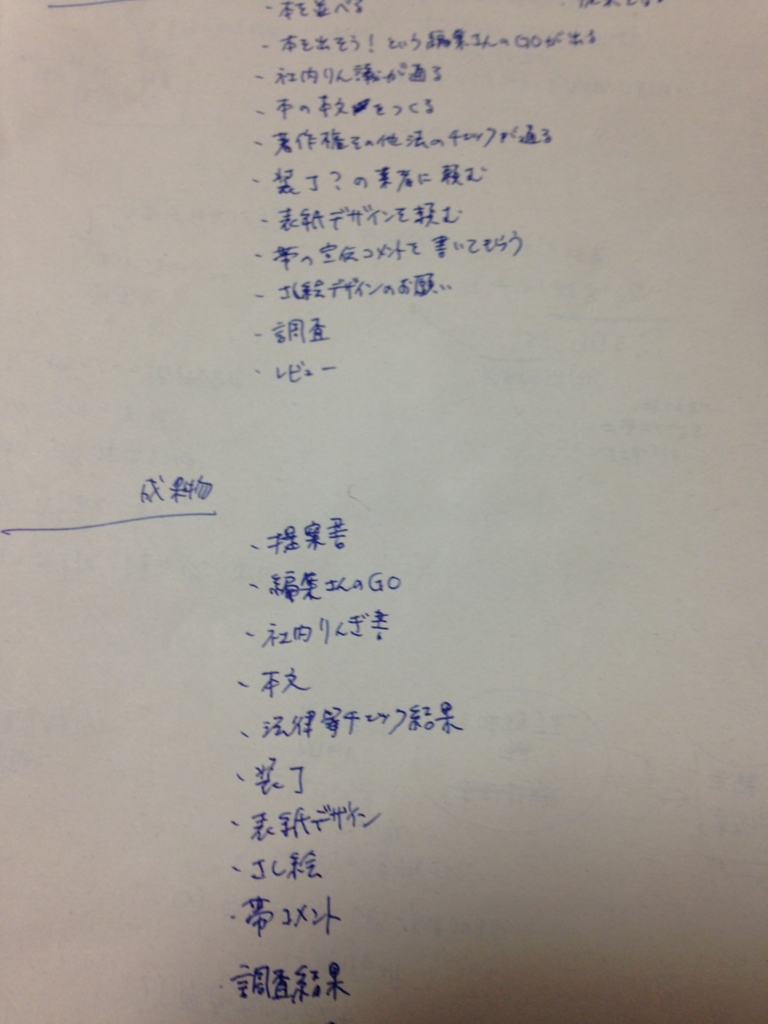 ・本を並べる
・本を出そう！という編集さんのGOが出る
・社内りん議が通る
・本の本文をつくる
・著作権その他法のチェックが通る
・装丁？の業者に頼む
・表紙デザインを頼む
・帯の宣伝コメントを書いてもらう
・さし絵デザインのお願い
・調査
・レビュー
成果物
・提案書
・編集さんのGO
・社内りんぎ書
・本文
・法律等チェック結果
・装丁
・表紙デザイン
・さし絵
・帯コメント
・調査結果